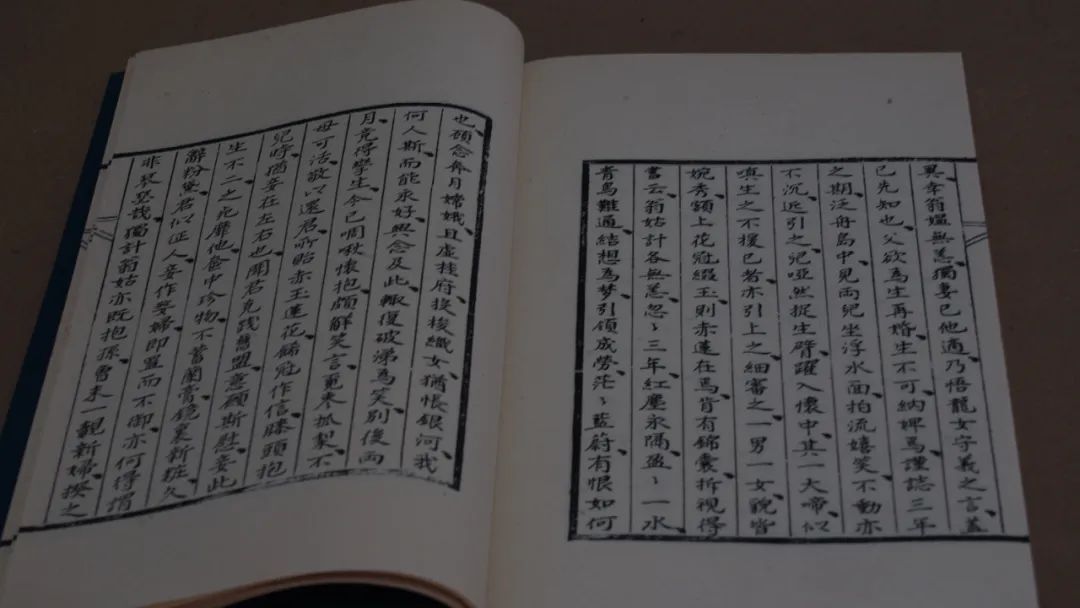 異幸翁媼無恙獨妻已他適乃悟龍女守義之言蓋
已先知也父欲為生再婚生不可納婢焉謹誌三年
之期泛舟島中見兩兒坐浮水面拍流嬉笑不動亦
不沉近引之兒啞然捉生臂躍入懷中其一大啼似
嗔生之不援已者亦引上之細審之一男一女貌皆
婉秀額上花冠綴玉則赤蓮在焉背有錦囊拆視得
書云翁姑計各無恙忽〻三年紅塵永隔盈〻一水
青鳥難通結想為夢引領成勞茫〻藍蔚有恨如何
也顧念奔月嫦娥且虛桂府投梭織女猶悵銀河我
何人斯而能永好興念及此輒復破涕為笑別後兩
月竟得孿生今已啁啾懷抱頗解笑言覓棗抓梨不
母可活敬以還君所貽赤玉蓮花飾冠作信膝頭抱
兒時猶妾在左右也聞君克踐舊盟意願斯慰妾此
生不二之死靡他奩中珍物不蓄蘭膏鏡裏新粧久
辭粉黛君似征人妾作蕩婦即置而不御亦何得謂
非琴瑟哉獨計翁姑亦既抱孫曾未一覿新婦揆之